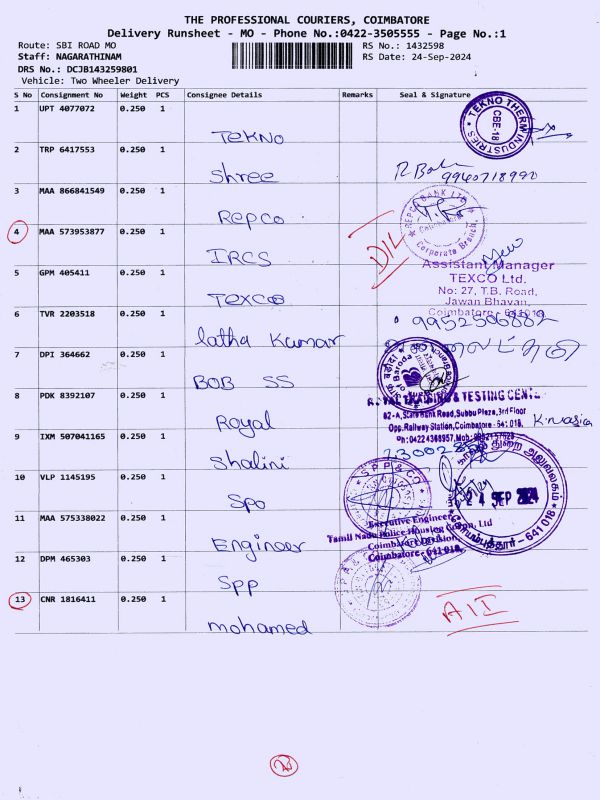 THE PROFESSIONAL COURIERS, COIMBATORE
Delivery Runsheet - MO - Phone No.:0422-3505555 - Page No.:1
Route: SBI ROAD MO
RS No.: 1432598
Staff: NAGARATHINAM
RS Date: 24-Sep-2024
DRS No.: DCJB143259801
Vehicle: Two Wheeler Delivery
S No Consignment No Weight PCS Consignee Details Remarks Seal & Signature
1 UPT 4077072 0.250 1 TEKNO
TEKNO THERM INDUSTRIES CBE-18
2 TRP 6417553 0.250 1 Shree
9940718990
3 MAA 866841549 0.250 1 Repco
REPCO BANK LTD
Corporate Branch
4 MAA 573953877 0.250 1 IRCS D/L
5 GPM 405411 0.250 1 Texco
Assistant Manager
TEXCO Ltd.
No: 27, T.B. Road,
Jawan Bhavan,
Coimbatore - 641018
6 TVR 2203518 0.250 1 latha Kumar
9952506882
7 DPI 364662 0.250 1 BOB SS
of Baroda
8 PDK 8392107 0.250 1 Royal
& TESTING CENT
82-A, State Bank Road, Subbu Plaza, 3rd Floor
Opp. Railway Station, Coimbatore - 641 018.
9 IXM 507041165 0.250 1 Shalini
10 VLP 1145195 0.250 1 Spo
SPP & CO
24 SEP 2024
11 MAA 575338022 0.250 1 Engineer
Executive Engineer
Tamil Nadu Police Housing Corpn, Ltd
Coimbatore Division
Coimbatore - 641 018.
12 DPM 465303 0.250 1 SPP
13 CNR 1816411 0.250 1 mohamed